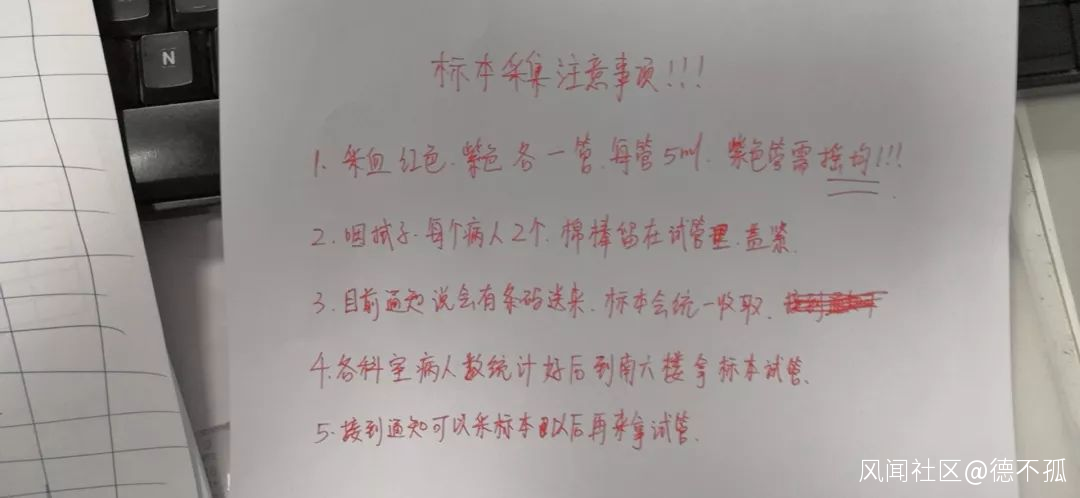 N
标本采集注意事项!!!
1. 采血红色.紫色各一管.每管5ml. 紫色管需摇均!!!
2. 咽拭子.每个病人2个.棉棒留在试管里.盖紧.
3. 目前通知说会有条码送来.标本会统一收取.
4. 各科室病人数统计好后到南六楼拿标本试管.
5. 接到通知可以采标本以后再来拿试管.
风闻社区@德不孤